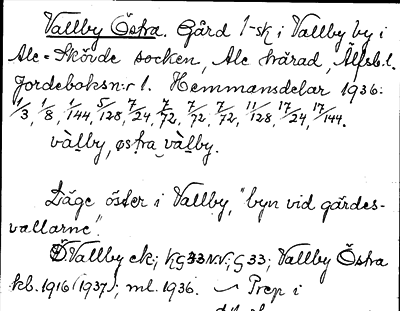 Vallby Östra. Gård 1-sk i Vallby by i
Ale-Skövde socken, Ale härad, Älfsb.l.
Jordeboksn:r 1. Hemmansdelar 1936:
1/3, 1/8, 1/144, 5/128, 7/24, 7/72, 7/72, 7/72, 11/128, 17/24, 17/144.
vàlby, østra vàlby.
Läge öster i Vallby, "byn vid gärdes-
vallarne".
Ö Vallby ek; KG33NV; G 33; Vallby Östra
kb. 1916 (1937); ml. 1936. Prep i